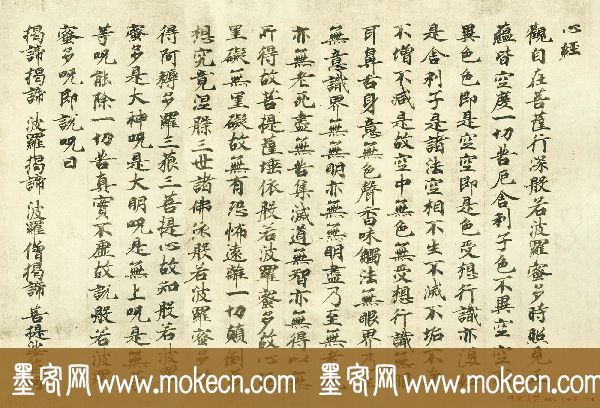 心經
觀自在菩薩行深般若波羅蜜多時照見
蘊皆空度一切苦厄舍利子色不異空空
異色色即是空空即是色受想行識亦復
是舍利子是諸法空相不生不滅不垢不
不增不減是故空中無色無受想行識無
耳鼻舌身意無色聲香味觸法無眼界乃
無意識界無無明亦無無明盡乃至無老
亦無老死盡無苦集滅道無智亦無得以無
所得故菩提薩埵依般若波羅蜜多故心
罣礙無罣礙故無有恐怖遠離一切顛倒
想究竟涅槃三世諸佛依般若波羅蜜多
得阿耨多羅三藐三菩提心故知般若波羅
蜜多是大神呪是大明呪是無上呪是無
等呪能除一切苦真實不虛故說般若波羅
蜜多呪即說呪曰
揭諦揭諦 波羅揭諦 波羅僧揭諦 菩提
墨客网 www.mokecn.com 墨客网 www.mokecn.com